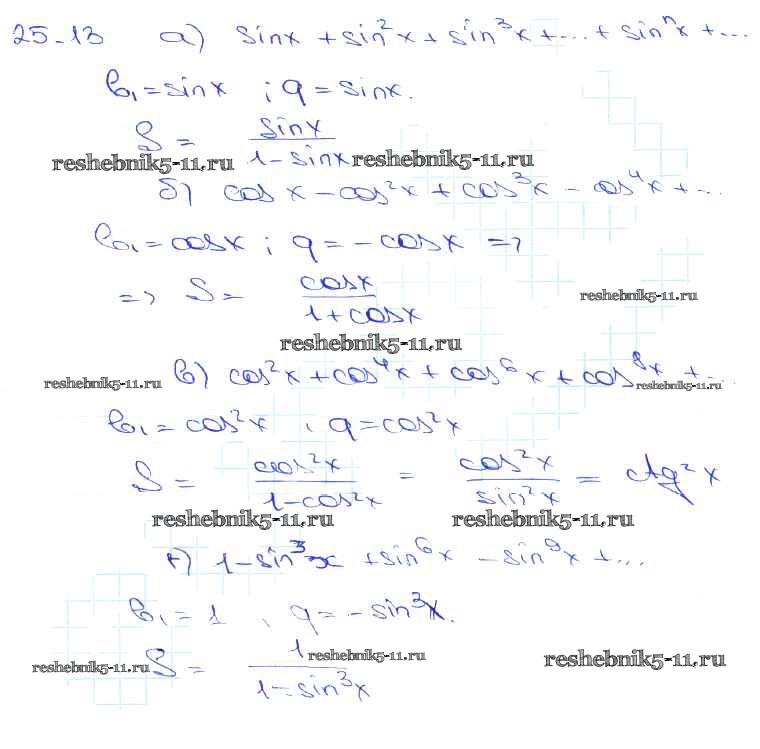 25-13 а) sinx + sin²x + sin³x + ... + sinⁿx + ...
b₁ = sinx ; q = sinx.
S = sinx / 1 - sinx
reshebnik5-11.ru reshebnik5-11.ru
б) cosx - cos²x + cos³x - cos⁴x + ...
b₁ = cosx ; q = -cosx =>
=> S = cosx / 1 + cosx
reshebnik5-11.ru
reshebnik5-11.ru
в) cos²x + cos⁴x + cos⁶x + cos⁸x + ...
reshebnik5-11.ru reshebnik5-11.ru
b₁ = cos²x , q = cos²x
S = cos²x / 1 - cos²x = cos²x / sin²x = ctg²x
reshebnik5-11.ru reshebnik5-11.ru
г) 1 - sin³x + sin⁶x - sin⁹x + ...
b₁ = 1 , q = -sin³x.
S = 1 / 1 - sin³x
reshebnik5-11.ru reshebnik5-11.ru reshebnik5-11.ru